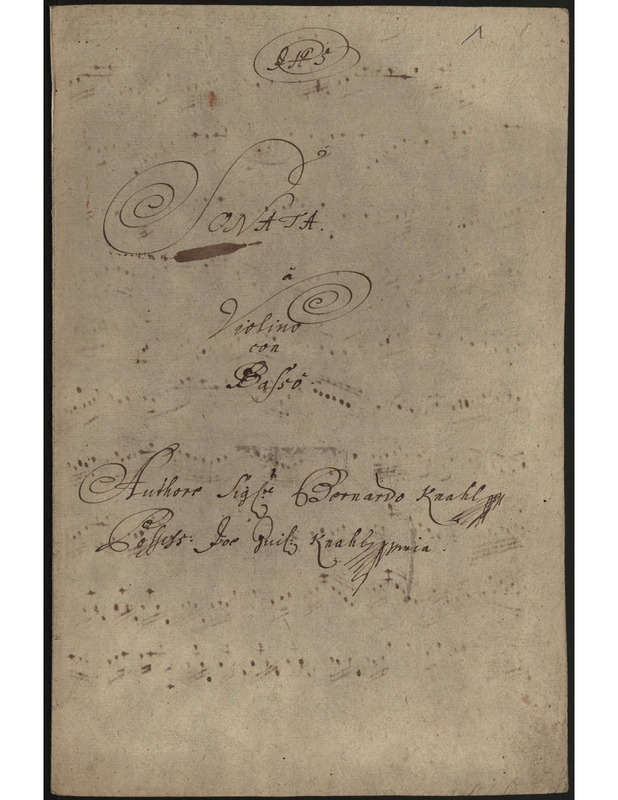 1
SONATA.
à
Violino
con
Basso.
Authore Sigre Bernardo Knahl
Possess: Joe Guil: Knahl